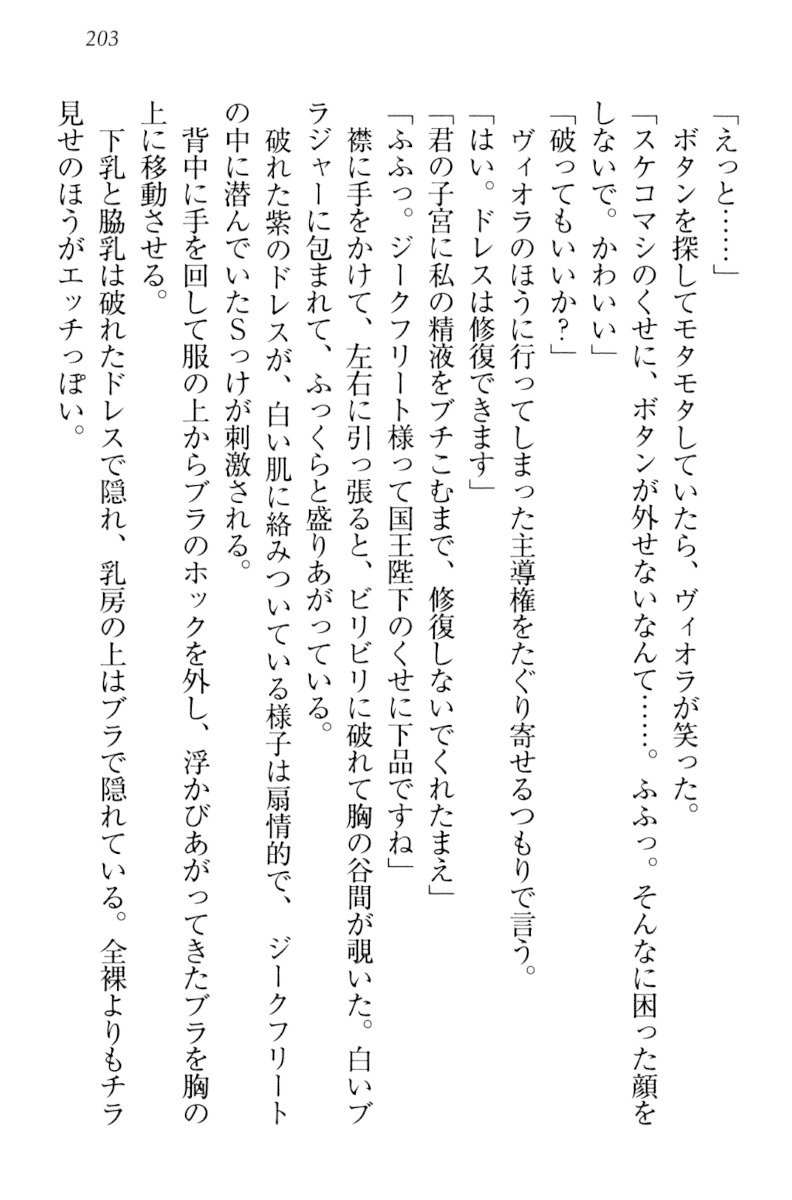 203
「えっと……」
ボタンを探してモタモタしていたら、ヴィオラが笑った。
「スケコマシのくせに、ボタンが外せないなんて……。ふふっ。そんなに困った顔を
しないで。かわいい」
「破ってもいいか？」
ヴィオラのほうに行ってしまった主導権をたぐり寄せるつもりで言う。
「はい。ドレスは修復できます」
「君の子宮に私の精液をブチこむまで、修復しないでくれたまえ」
「ふふっ。ジークフリート様って国王陛下のくせに下品ですね」
襟に手をかけて、左右に引っ張ると、ビリビリに破れて胸の谷間が覗いた。白いブ
ラジャーに包まれて、ふっくらと盛りあがっている。
破れた紫のドレスが、白い肌に絡みついている様子は扇情的で、ジークフリート
の中に潜んでいたSっけが刺激される。
背中に手を回して服の上からブラのホックを外し、浮かびあがってきたブラを胸の
上に移動させる。
下乳と脇乳は破れたドレスで隠れ、乳房の上はブラで隠れている。全裸よりもチラ
見せのほうがエッチっぽい。